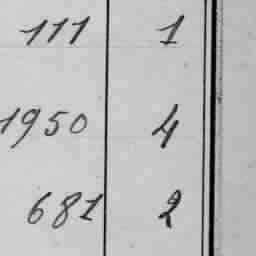 111 1
1950 4
681 2